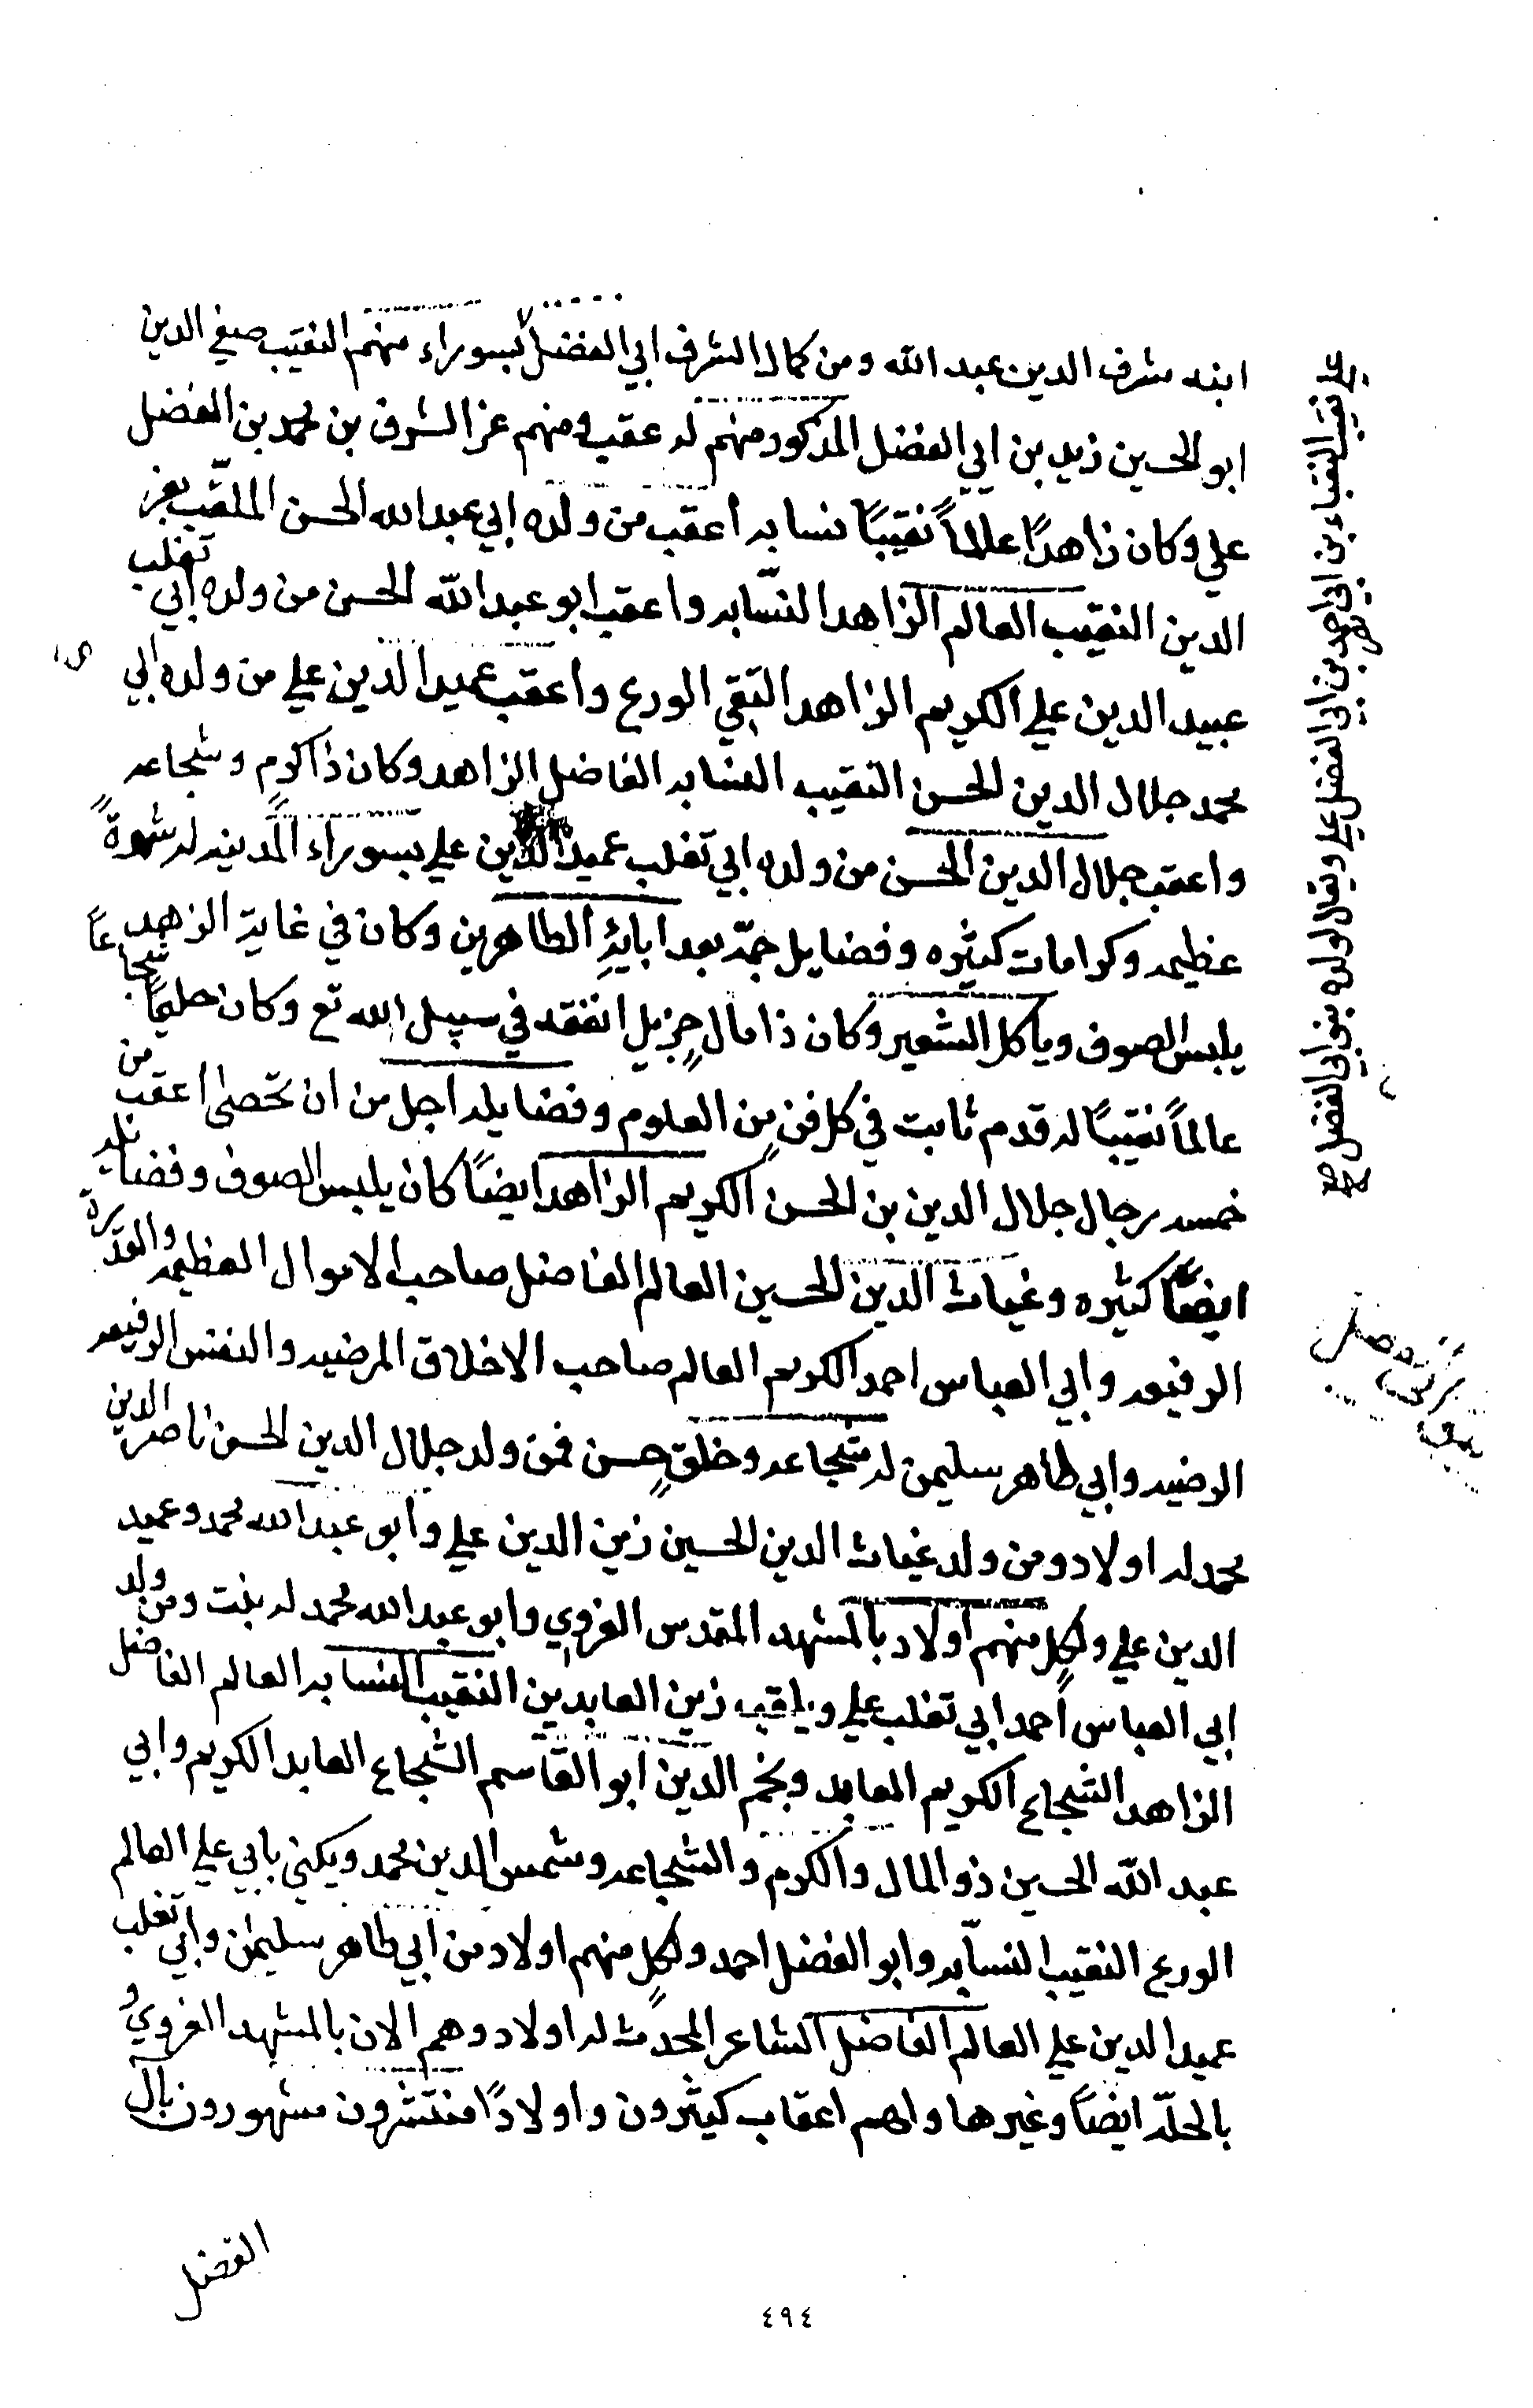 ابنه شرف الدين عبد الله ومن كمال الشرف ابي الفضل بسوراء منهم النقيب صفي الدين
ابو الحسين زيد بن ابي الفضل المذكور منهم له عقب ومنهم عز الشرف بن محمد بن الفضل
علي وكان زاهدًا عالمًا نقيبًا نسابه اعقب من ولده ابي عبد الله الحسن الملقب بعز
الدين النقيب العالم الزاهد النسّابه واعقب ابو عبد الله الحسن من ولده ابي تغلب
عبيد الدين علي الكريم الزاهد التقي الورع واعقب عميد الدين علي من ولده ابي
محمد جلال الدين الحسن النقيب النسابه الفاضل الزاهد وكان ذا كرم وشجاعه
واعقب جلال الدين الحسن من ولده ابي تغلب عميد الدين علي بسوراء المدينه له شهرةً
عظيمه وكرامات كثيره وفضايل جمّه بعد ابايهِ الطاهرين وكان في غايةِ الزهد
يلبس الصوف وياكل الشعير وكان ذا مالٍ جزيل انفقه في سبيل الله تع وكان حليمًا شجاعًا
عالمًا نقيبًا له قدم ثابت في كل فنٍ من العلوم وفضايله اجل من ان تحصى اعقب من
خمسه رجال جلال الدين بن الحسن الكريم الزاهد ايضًا كان يلبس الصوف وفضايله
ايضًا كثيره وغياث الدين الحسين العالم الفاضل صاحب الاموال العظيمه والقدرة
الرفيعه وابي العباس احمد الكريم العالم صاحب الاخلاق المرضيه والنفس الرفيعه
الرضيه وابي طاهر سليمن له شجاعه وخلقٍ حسن فمن ولد جلال الدين الحسن ناصر الدين
محمد له اولاد ومن ولد غياث الدين الحسين زين الدين علي وابو عبد الله محمد وعميد
الدين علي ولكلٍ منهم اولاد بالمشهد المقدس الغروي وابو عبد الله محمد له بنت ومن ولد
ابي العباس احمد ابي تغلب علي ويلقب زين العابدين النقيب النسابه العالم الفاضل
الزاهد الشجاع الكريم العابد ونجم الدين ابو القاسم الشجاع العابد الكريم وابي
عبد الله الحسين ذو المال والكرم والشجاعه وشمس الدين محمد ويكنى بابي علي العالم
الورع النقيب النسّابه وابو الفضل احمد ولكلٍ منهم اولاد من ابي طاهر سليمان وابي تغلب
عميد الدين علي العالم الفاضل الشاعر المحدث له اولاد وهم الان بالمشهد الغروي و
بالحلّه ايضًا وغيرها ولهم اعقاب كثيرون واولادًا منتشرون مشهورون بآل
الفضل
علي نقيب النقباء بن ابي احمد بن ابي الفضل علي ويقال لولده بنو ابي الفضل صح
٤٩٤